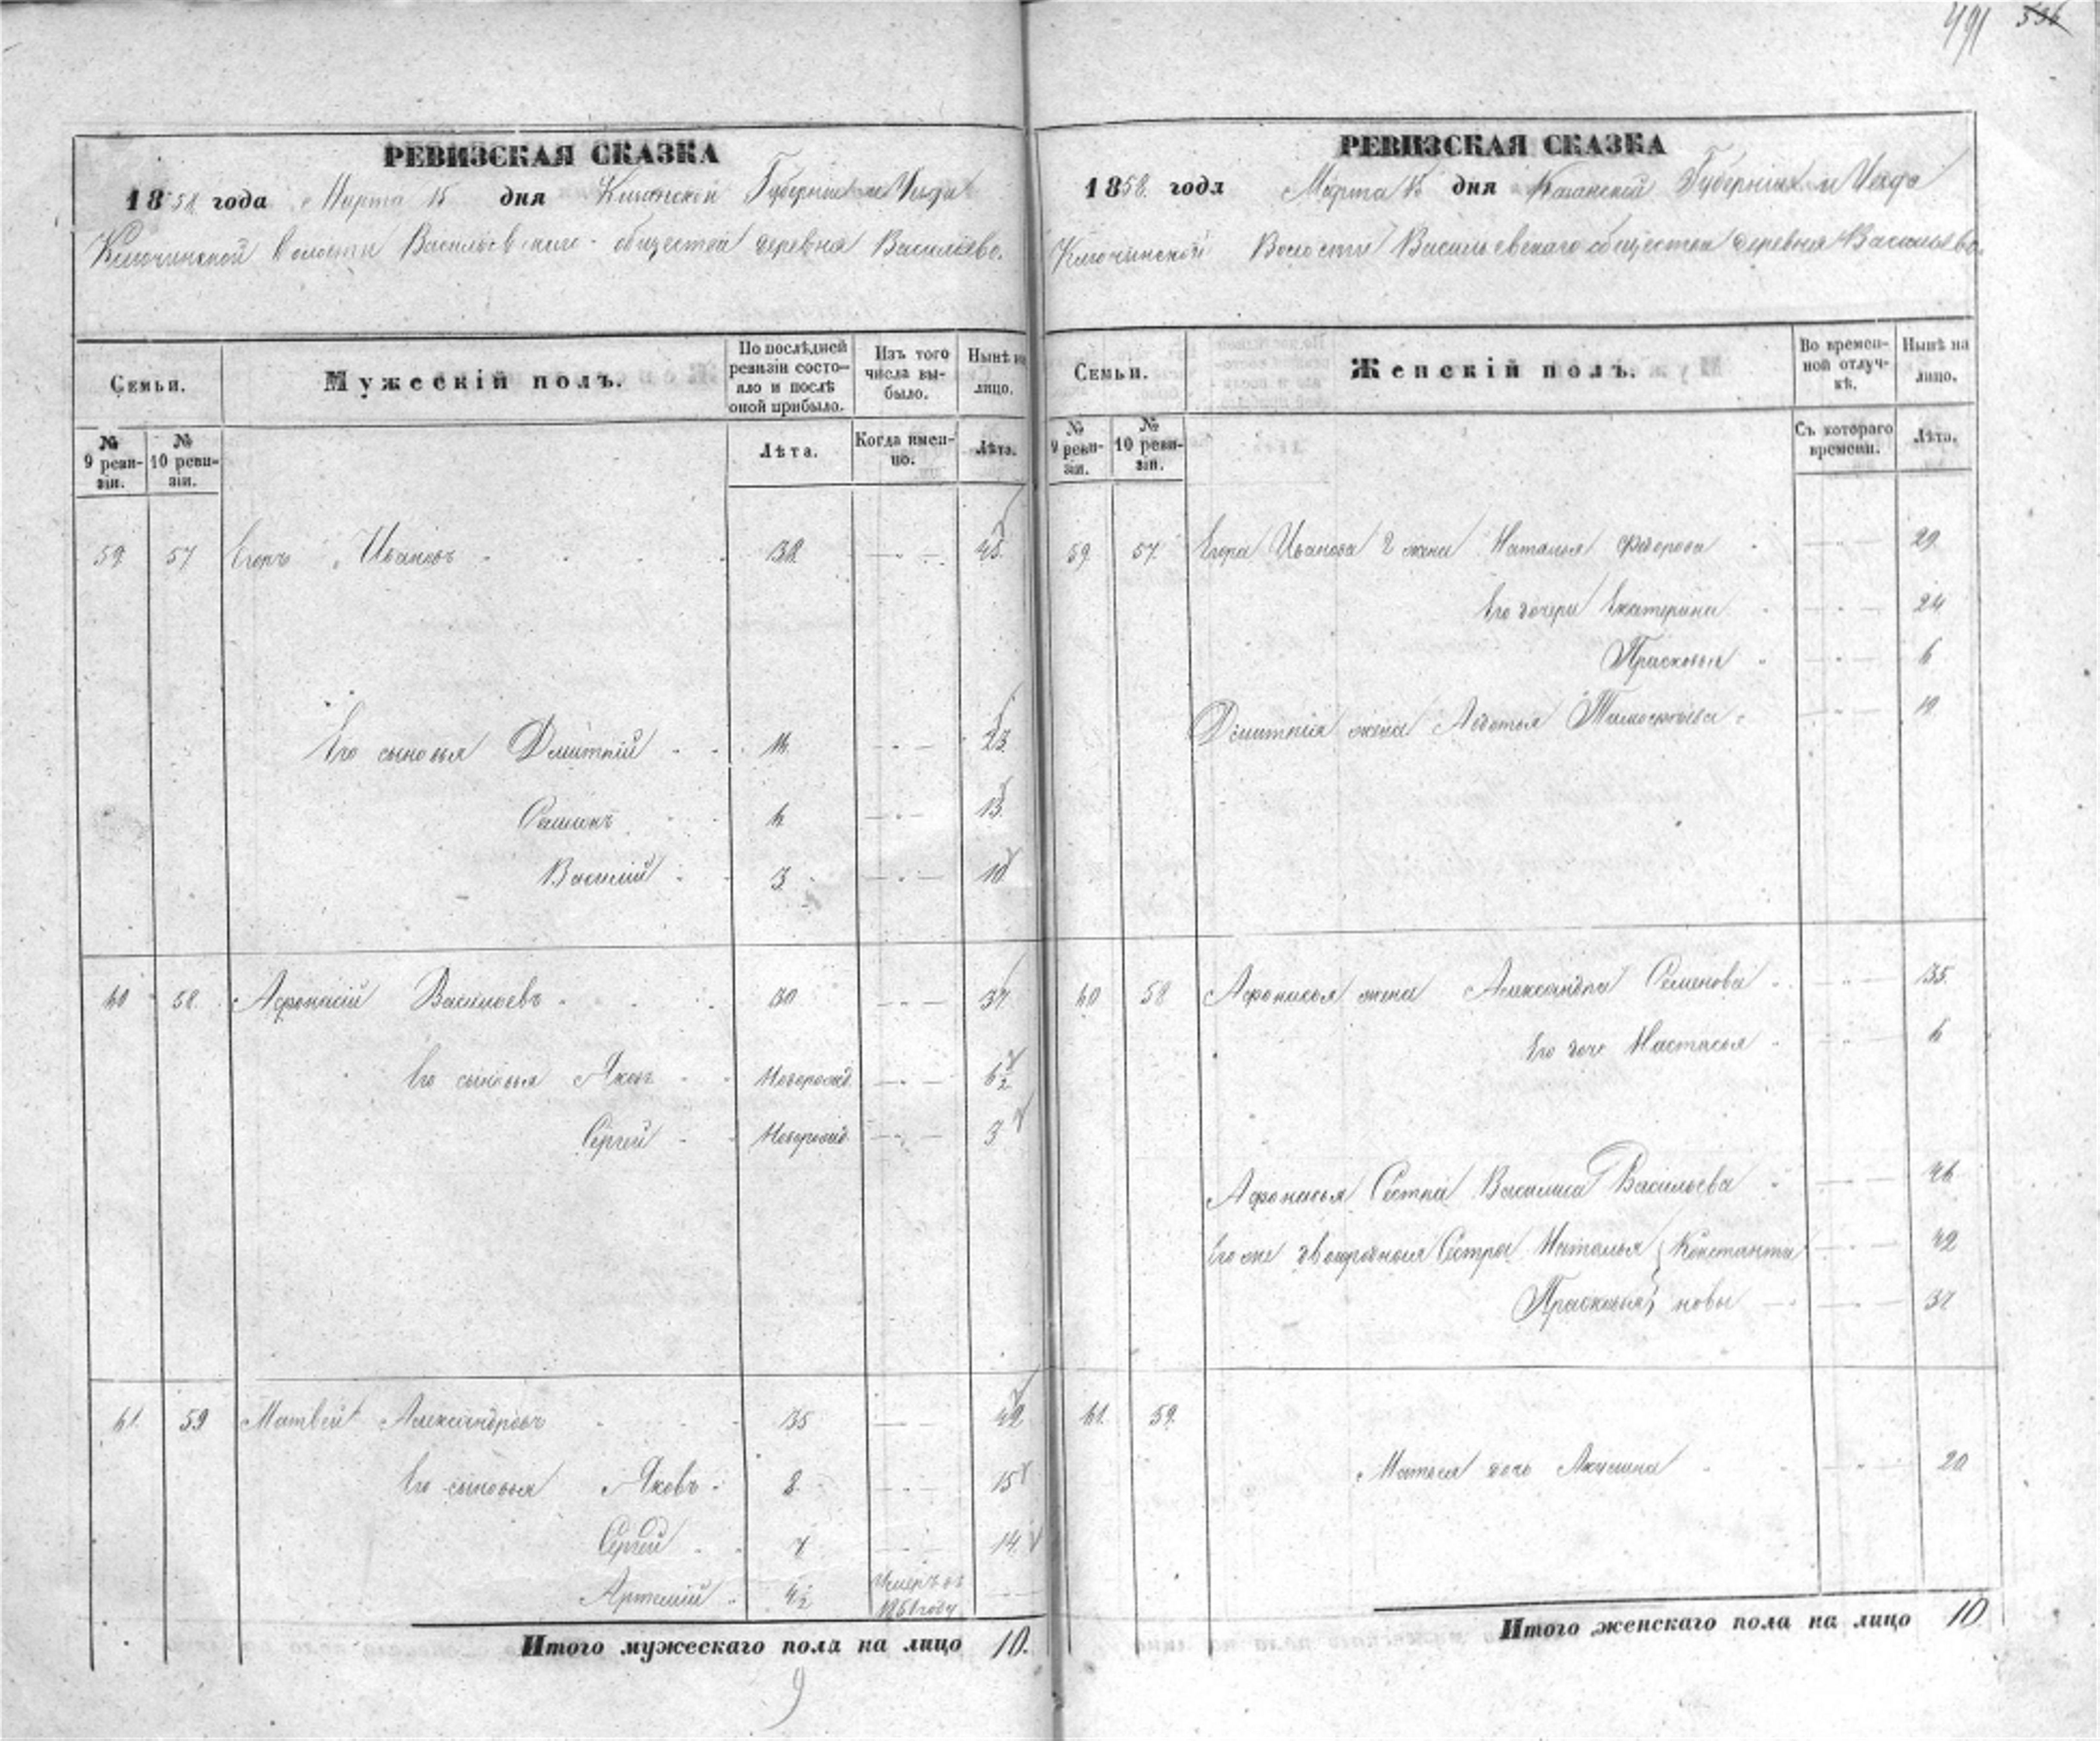 491 536
РЕВИЗСКАЯ СКАЗКА
1858 года Марта 15 дня Казанской Губернии и Уезда
Ключинской Волости Васильевскаго общества деревня Васильево.
Семьи.
Мужескій полъ.
По послѣдней ревизіи состо-
яло и послѣ
оной прибыло.
Изъ того
числа вы-
было.
Нынѣ на
лицо.
№ 9 реви-
зіи.
№ 10 реви-
зіи.
Лѣта.
Когда имен-
но.
Лѣта.
59. 57 Егоръ Ивановъ 38. 45.
Его сыновья Дмитрій 16. 23.
Семинъ 6. 13.
Василій 3. 10.
60 58. Афонасій Васильевъ 30 37.
Его сыновья Яковъ Новорожд. 6½
Сергей Новорожд. 3
61. 59 Матвей Александровъ 35 42
Его сыновья Яковъ 8. 15
Сергей 7 14.
Артемій 4½ Умеръ въ
1851 году
Итого мужескаго пола на лицо 10.
9
РЕВИЗСКАЯ СКАЗКА
1858. года Марта 15 дня Казанской Губерніи и Уезда
Ключинской Волости Васильевскаго общества деревня Васильево.
Семьи.
Женскій полъ.
Во времен-
ной отлуч-
кѣ.
Нынѣ на
лицо.
№ 9 реви-
зіи.
№ 10 реви-
зіи.
Съ котораго
времени.
Лѣта.
59. 57. Егора Иванова 2 жена Наталья Федорова 29.
Его дочери Екатерина 24.
Прасковья 6
Дмитрія жена Авдотья 19
60 58 Афонасья жена Александра Семенова 35.
Его дочь Настасья 6
Афонасья Сестра Василиса Васильева 46.
Его же двоюродныя Сестры Наталья } Константи 42
Прасковья } новы 37
61. 59.
Матвея дочь Акулина 20
Итого женскаго пола на лицо 10